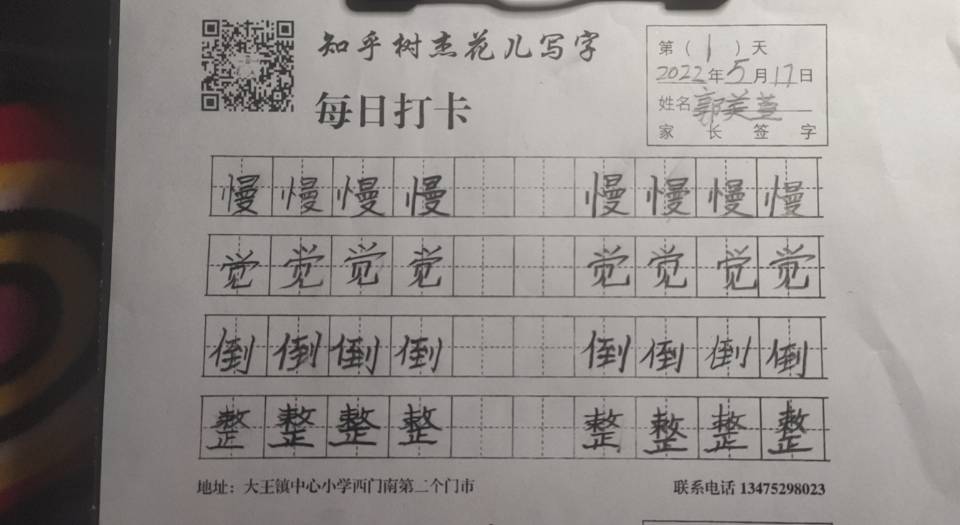 知乎树杰花儿写字
每日打卡
第（1）天
2022年5月17日
姓名 郭美萱
家长签字
慢慢慢慢 慢慢慢慢
觉觉觉觉 觉觉觉觉
倒倒倒倒 倒倒倒倒
整整整整 整整整整
地址：大王镇中心小学西门南第二个门市
联系电话 13475298023